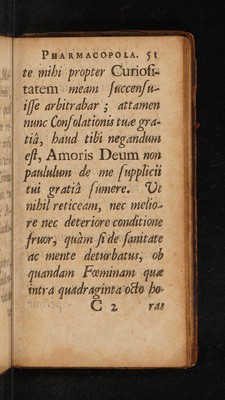 PHARMACOPOLA. 51
te mihi propter Curiosi-
tatem meam succensu-
isse arbitrabar ; attamen
nunc Consolationis tuæ gra-
tiâ, haud tibi negandum
est, Amoris Deum non
paululum de me supplicii
tui gratiâ sumere. Ut
nihil reticeam, nec melio-
re nec deteriore conditione
fruor, quàm si de sanitate
ac mente deturbatus, ob
quandam Fœminam quæ
intra quadraginta octo ho-
C 2 ras